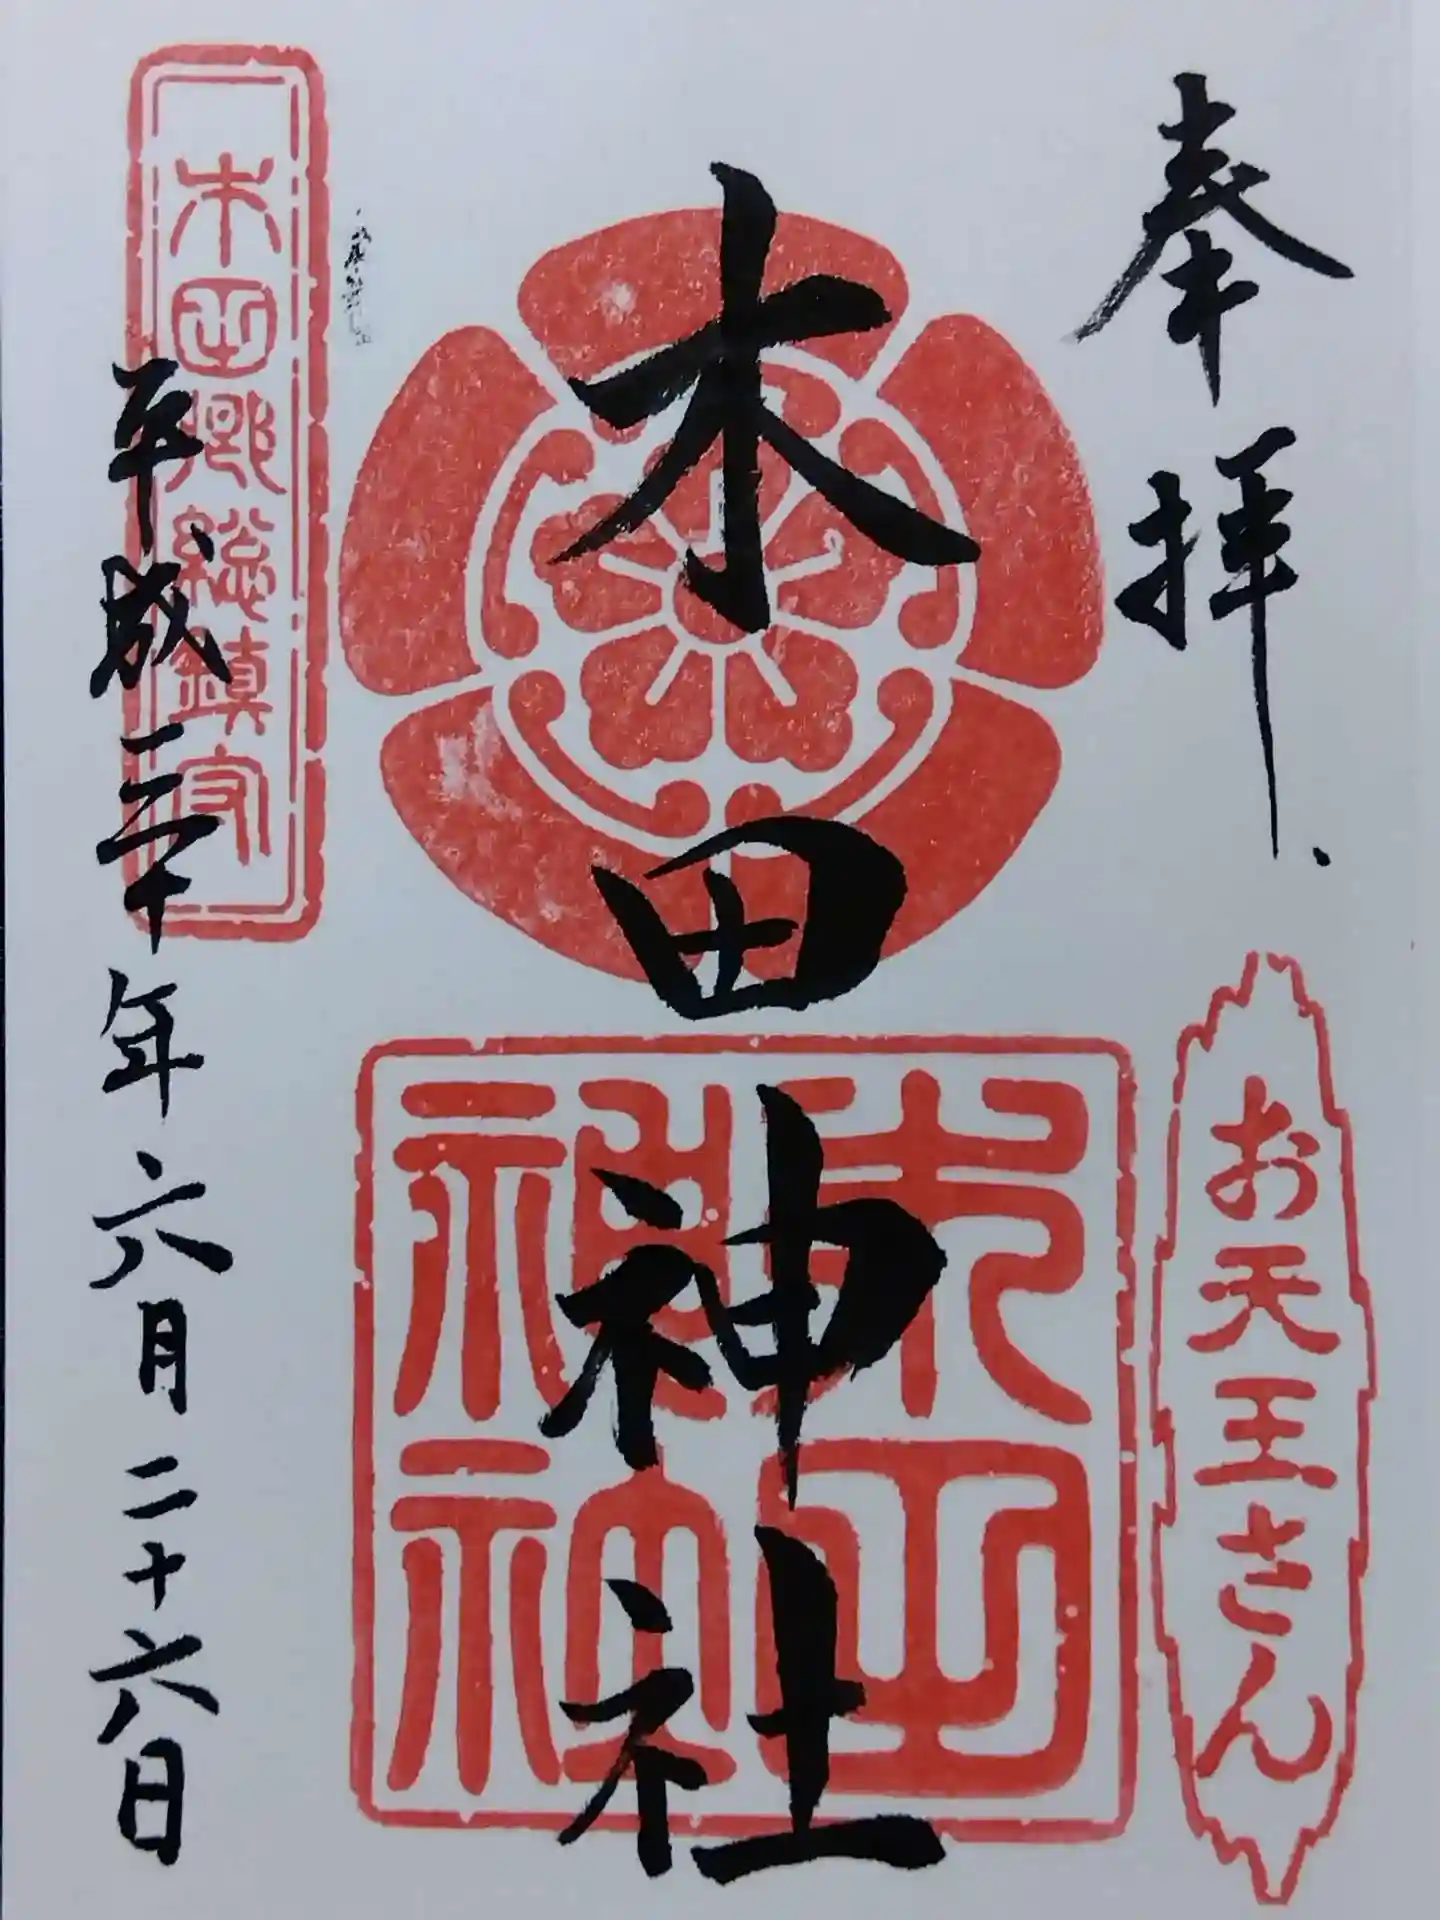 奉拝
お天王さん
木田神社
木田神社
木田郷総鎮守
平成三十年六月二十六日